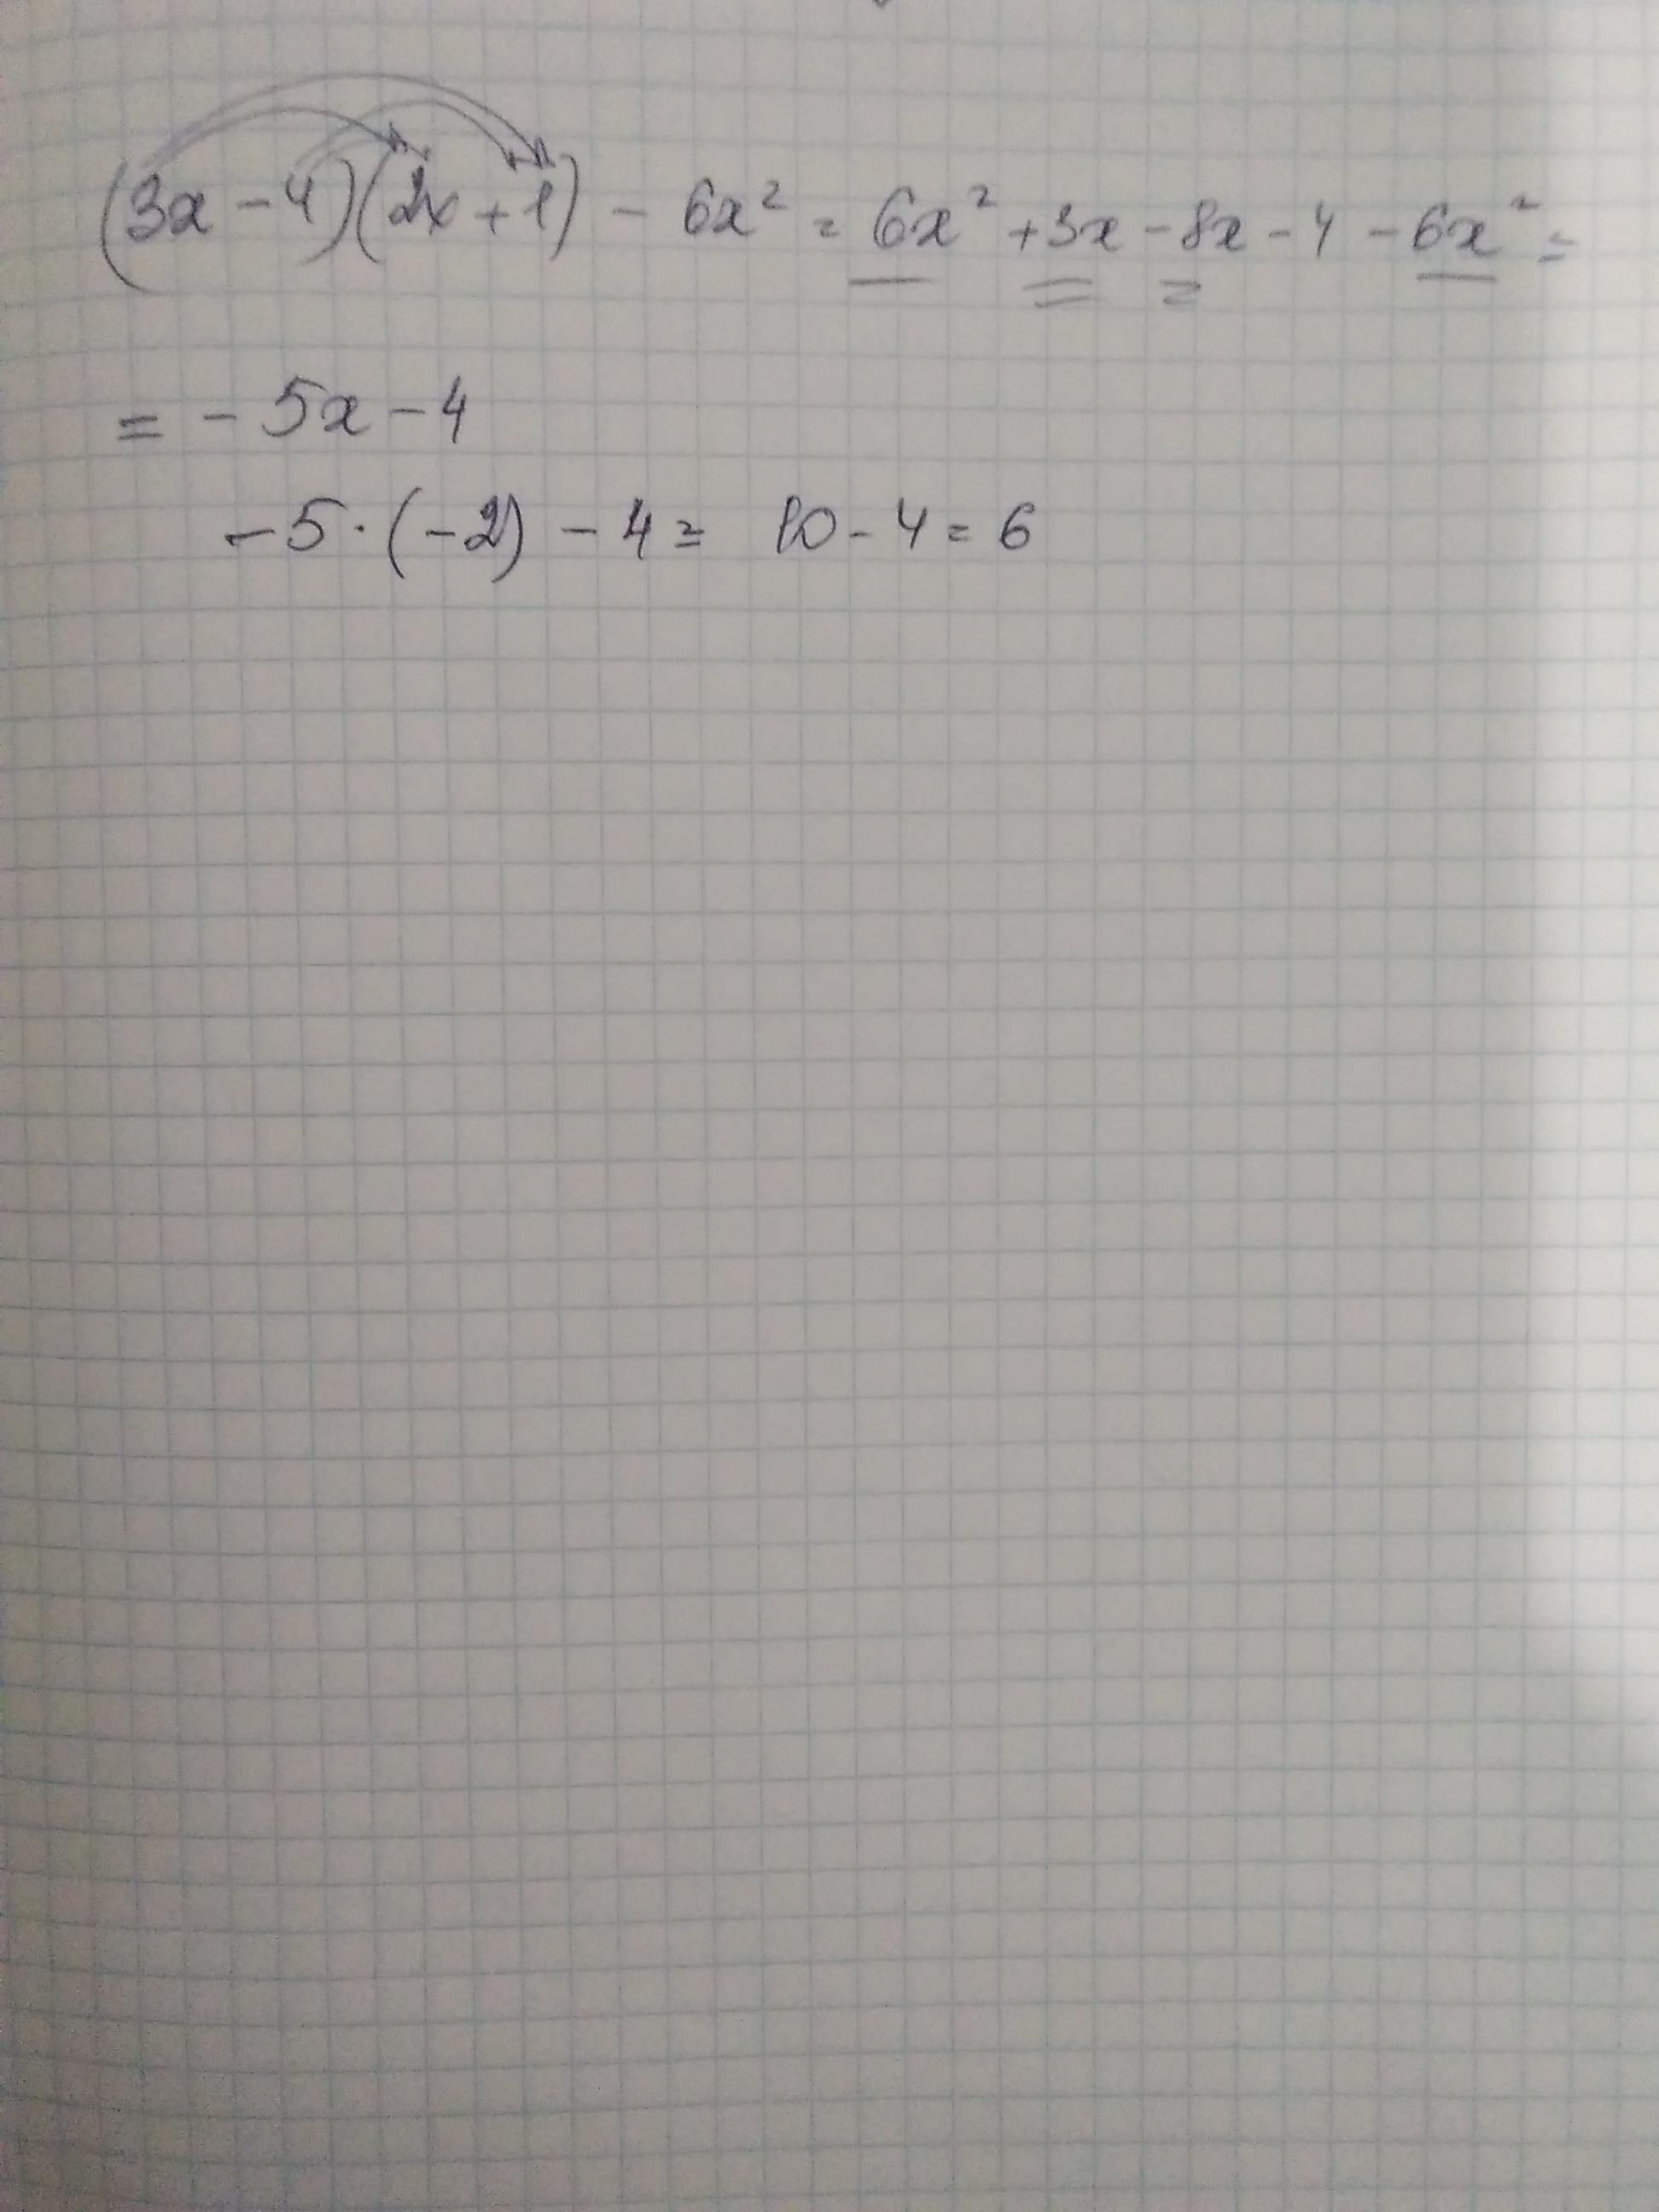 (3x-4)(2x+1) - 6x² = 6x² + 3x - 8x - 4 - 6x² =
= - 5x - 4
- 5 · (-2) - 4 = 10 - 4 = 6